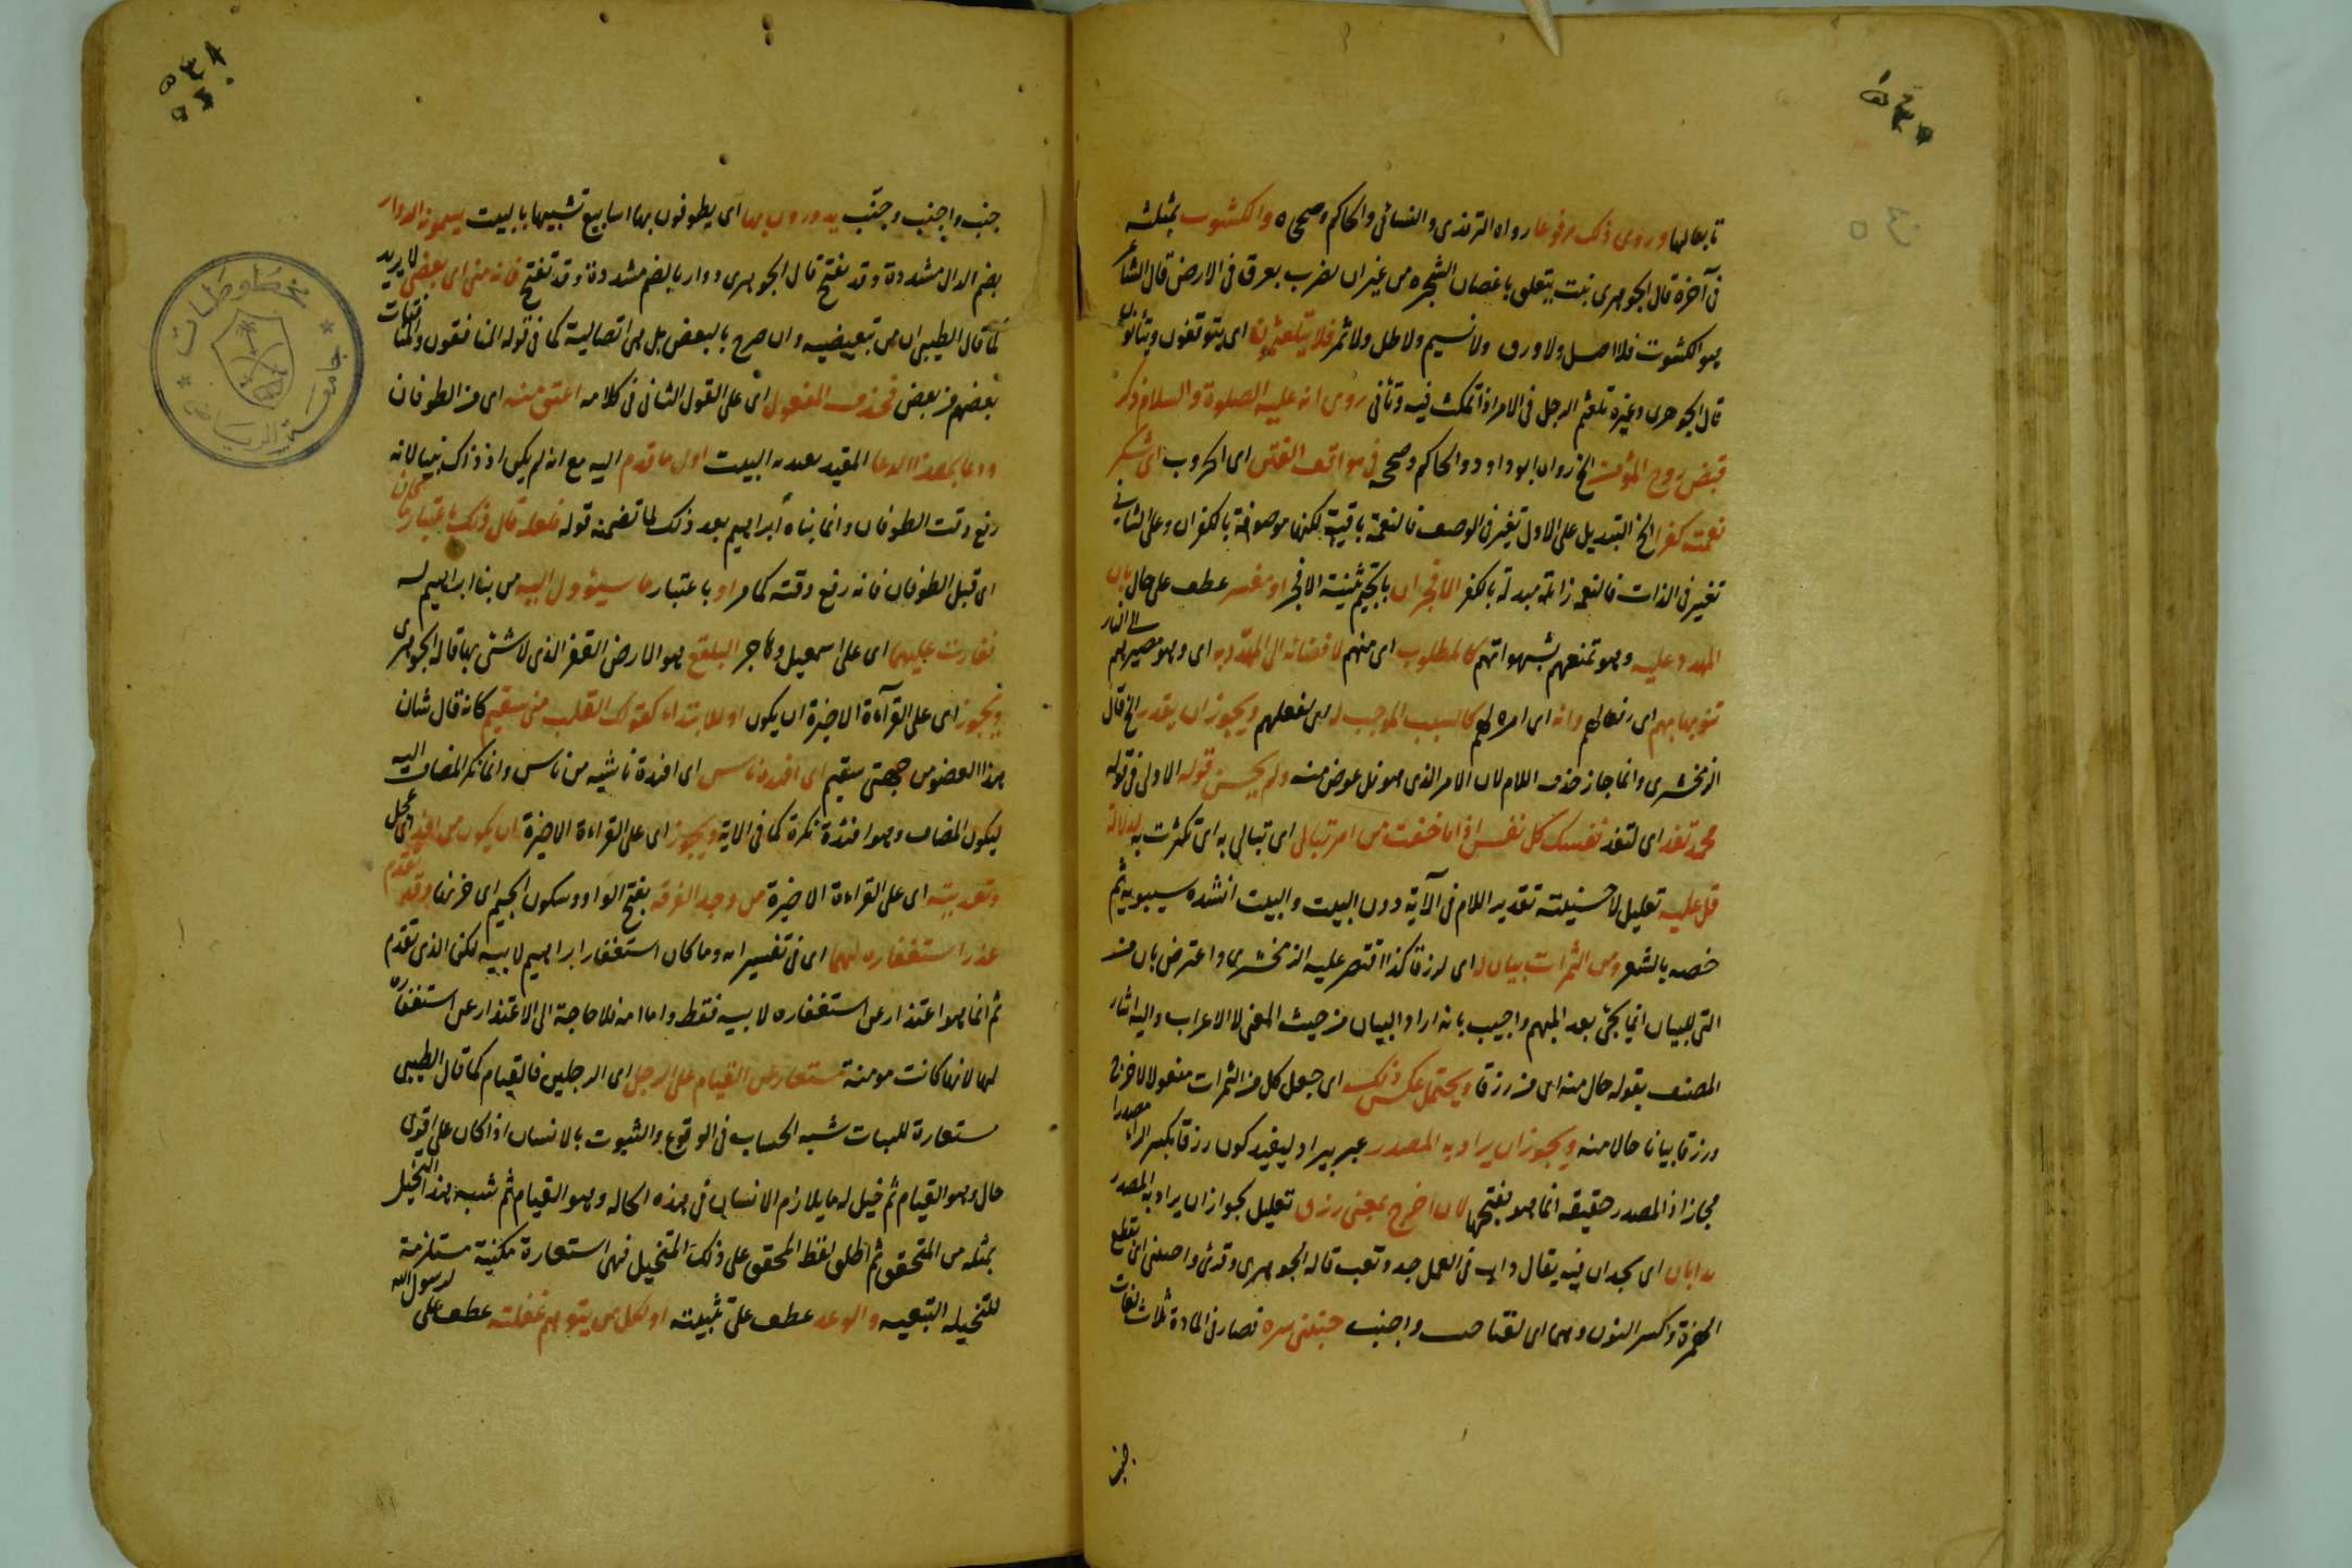 تابعا لها وروى ذلك مرفوعا رواه الترمذى والنسائى والحاكم وصححاه والكشوث بمثلثة
فى آخره قال الجوهرى نبت يتعلق باغصان الشجره من غير ان يضرب بعرق فى الارض قال الشاعر
هو الكشوث فلا اصل ولا ورق ولا نسيم ولا ظل ولا ثمر فلا يتلعثم اى يتوقفون ويتأنون
قال الجوهرى وغيره تلعثم الرجل فى الامر اذا تمكث فيه وتأنى روى انه عليه الصلوة والسلام ذكر
قبض روح المؤمن الخ رواه ابو داود والحاكم وصححه فى مواقف الفتن اى الحروب اى شكر
نعمته كفرا الخ التبديل على الاول تغير فى الوصف فالنعمة باقية لكنها موصوفة بالكفران وعلى الثانى
تغير فى الذات فالنعمة زائلة مبدلة بالكفر الافجران بالجيم تثنية الافجر او مفسر عطف على حال بان
المهدد عليه وهو تمتعهم بشهواتهم كالمطلوب اى منهم لافضائه الى المهدد به اى وهو مصيرهم الى النار
اى امره لهم كالسبب الموجب له اى لفعلهم ويجوز ان يقدر الخ قال
الزمخشرى وانما جاز حذف اللام لان الامر الذى هو قل عوض منه ولم يحسن قوله الاولى فى قوله
محمد تفد اى لتفد نفسك كل نفس اذا ما خفت من امر تبالى اى تبالى به اى تكترث به لدلالة
قل عليه تعليل لاحسنيته تقدير اللام فى الآية دون البيت والبيت انشده سيبويه ثم
خصه بالشعر ومن الثمرات بيان له اى لرزقا كذا اقتصر عليه الزمخشرى واعترض بان من
التى للبيان انما تجئ بعد المبهم واجيب بانه اراد البيان من حيث المعنى لا الاعراب واليه اشار
المصنف بقوله حال منه اى من رزقا ويحتمل عكس ذلك اى جعل كل من الثمرات مفعولا لاخرج
ورزقا بيانا حالا منه ويجوز ان يراد به المصدر عبر بيراد ليفيد كون رزقا بكسر الراء مصدرا
مجازا اذ المصدر حقيقه انما هو بفتحها لان اخرج بمعنى رزق تعليل لجواز ان يراد به المصدر
يدابان اى يجدان فيه يقال داب فى العمل جد وتعب قاله الجوهرى وقرئ واجنبنى اى بقطع
الهمزة وكسر النون وهما اى لغتا جنب واجنب جنبنى شره فصار فى المادة ثلاث لغات
جنب
جنب واجنب وجنّب يدورون بها اى يطوفون بها اسابيع تشبيها بالبيت يسمونه الدوار
بضم الدال مشددة وقد يفتح قال الجوهرى دوار بالضم مشددة وقد تفتح فانه منى اى بعضى لا يريد
كما قال الطيبى ان من تبعيضيه وان صرح بالبعض بل هى اتصالية كما فى قوله المنافقون والمنافقات
بعضهم من بعض فحذف المفعول اى على القول الثانى فى كلامه اعتق منه اى من الطوفان
ودعا بهذا الدعا المقيد بعند البيت اول ما قدم اليه مع انه لم يكن اذ ذاك بيتا لانه
رفع وقت الطوفان وانما بناه ابراهيم بعد ذلك لما تضمنه قوله فلعله قال ذلك باعتبار ما كان
اى قبل الطوفان فانه رفع وقته كما مر او باعتبار ما سيؤول اليه من بناء ابراهيم له
فغارت عليهما اى على اسمعيل وهاجر البلقع هو الارض القفر الذى لا شئ بها قاله الجوهرى
ويجوز اى على القرآءة الاخيرة ان يكون او للابتداء كقولك القلب منى سقيم كانه قال شان
هذا العضو من جهتى سقيم اى افئدة ناس اى افئدة ناشيه من ناس وانما نكر المضاف اليه
ليكون المضاف وهو افئدة نكرة كما فى الاية ويجوز اى على القراءة الاخيرة ان يكون من افد اى عجل
وتعديته اى على القراءة الاخيرة من وجد الفرقه بفتح الواو وسكون الجيم اى حزنها وقد تقدم
عذر استغفاره لهما اى فى تفسير انه وما كان استغفار ابراهيم لابيه لكن الذى تقدم
ثم انما هو اعتذار عن استغفاره لابيه فقط واما امه فلا حاجة الى الاعتذار عن استغفاره
لها لانها كانت مومنة مستعار من القيام على الرجل اى الرجلين فالقيام كما قال الطيبى
مستعارة للثبات شبه الحساب فى الوقوع والثبوت بالانسان اذا كان على اقوى
حال وهو القيام ثم خيل له ما يلازم الانسان فى هذه الحاله وهو القيام ثم شبه هذا التخيل
بمثله من المتحقق ثم اطلق لفظ المحقق على ذلك المتخيل فهى استعارة مكنية مستلزمة
للتخيلية التبعيه والوعد عطف على تثبيته او لكل من يتوهم غفلته عطف على لرسول الله
مخطوطات
جامعة الرياض